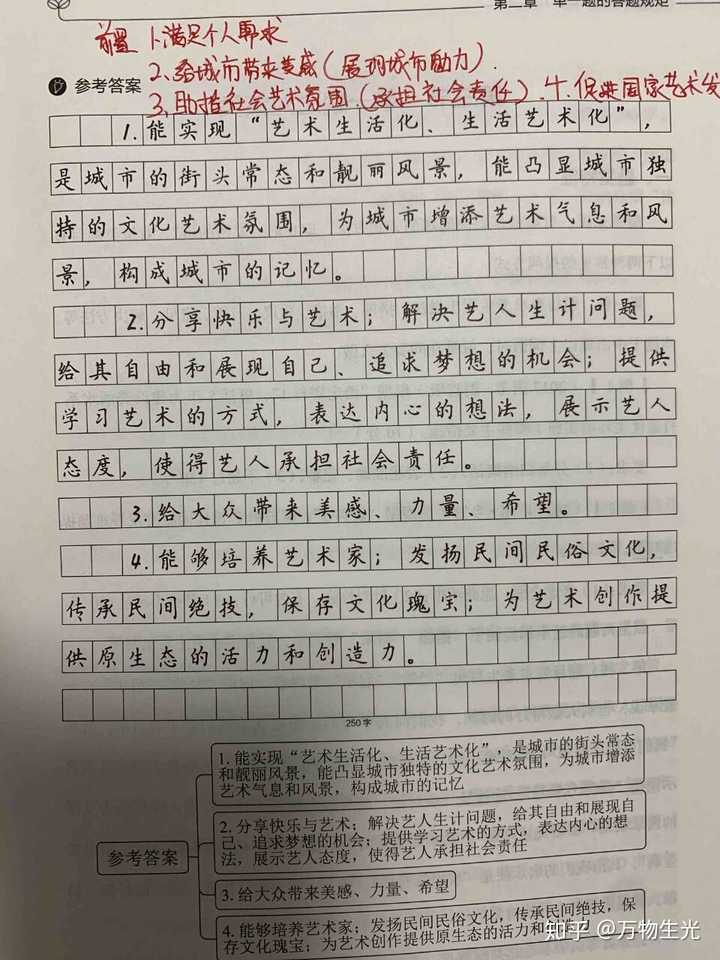 第二章 单一题的答题规矩
前置 1.满足个人要求
2、给城市带来美感(展现城市助力).
3、助推社会艺术氛围.(承担社会责任).4.促进国家艺术发
参考答案
1.能实现“艺术生活化、生活艺术化”,
是城市的街头常态和靓丽风景,能凸显城市独
特的文化艺术氛围,为城市增添艺术气息和风
景,构成城市的记忆。
2.分享快乐与艺术;解决艺人生计问题,
给其自由和展现自己、追求梦想的机会;提供
学习艺术的方式,表达内心的想法,展示艺人
态度,使得艺人承担社会责任。
3.给大众带来美感、力量、希望。
4.能够培养艺术家;发扬民间民俗文化,
传承民间绝技,保存文化瑰宝;为艺术创作提
供原生态的活力和创造力。
250字
参考答案
1.能实现“艺术生活化、生活艺术化”,是城市的街头常态
和靓丽风景,能凸显城市独特的文化艺术氛围,为城市增添
艺术气息和风景,构成城市的记忆
2.分享快乐与艺术;解决艺人生计问题,给其自由和展现自
己、追求梦想的机会;提供学习艺术的方式,表达内心的想
法,展示艺人态度,使得艺人承担社会责任
3.给大众带来美感、力量、希望
4.能够培养艺术家;发扬民间民俗文化,传承民间绝技,保
存文化瑰宝;为艺术创作提供原生态的活力和创造力
知乎 @万物生光